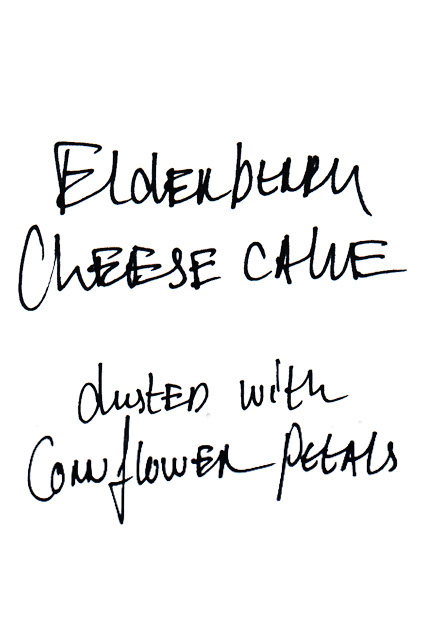 Elderberry
Cheese cake
dusted with
Cornflower Petals